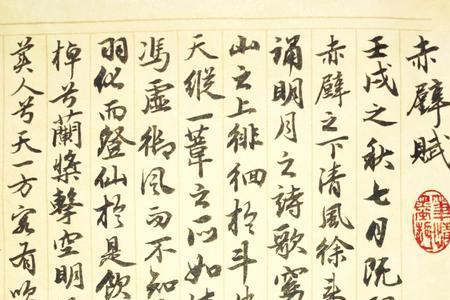 赤壁賦
壬戌之秋七月既
赤壁之下清風徐來
誦明月之詩歌窈
山之上徘徊於斗
天縱一葦之所如
馮虛御風而不知
羽化而登仙於是飲
棹兮蘭槳擊空明
美人兮天一方客有吹